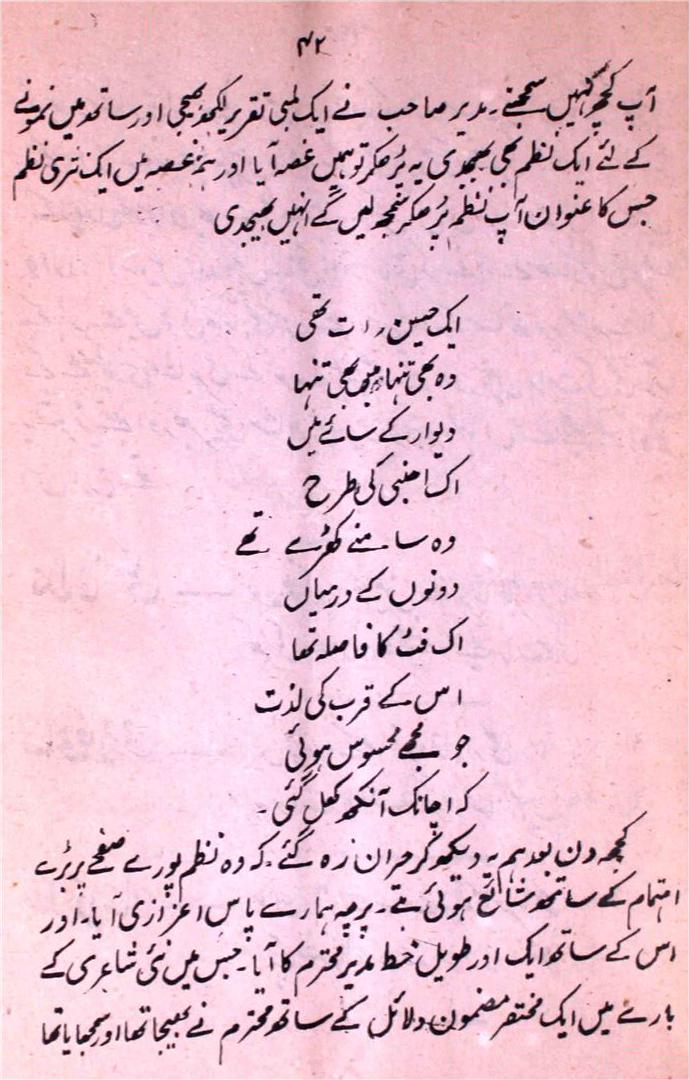 ۴۲
آپ کچھ نہیں سمجھتے۔ مدیر صاحب نے ایک لمبی تقریر لکھ بھیجی اور ساتھ میں نمونے
کے لئے ایک نظم بھی بھیجدی یہ پڑھکر تو ہمیں غصہ آیا اور ہم نے غصہ میں ایک نثری نظم
جس کا عنوان آپ نظم پڑھکر سمجھ لیں گے انہیں بھیجدی
ایک حسین رات تھی
وہ بھی تنہا، میں بھی تنہا
دیوار کے سائے میں
اک اجنبی کی طرح
وہ سامنے کھڑے تھے
دونوں کے درمیاں
اک فٹ کا فاصلہ تھا
اس کے قرب کی لذت
جو مجھے محسوس ہوئی
کہ اچانک آنکھ کھل گئی۔
کچھ دن بعد ہم یہ دیکھ کر حیران رہ گئے۔ کہ وہ نظم پورے صفحے پر بڑے
اہتمام کے ساتھ شائع ہوئی ہے۔ پرچہ ہمارے پاس اعزازی آیا۔ اور
اس کے ساتھ ایک اور طویل خط مدیر محترم کا آیا۔ جس میں نئی شاعری کے
بارے میں ایک مختصر مضمون دلائل کے ساتھ محترم نے بھیجا تھا اور سمجھایا تھا